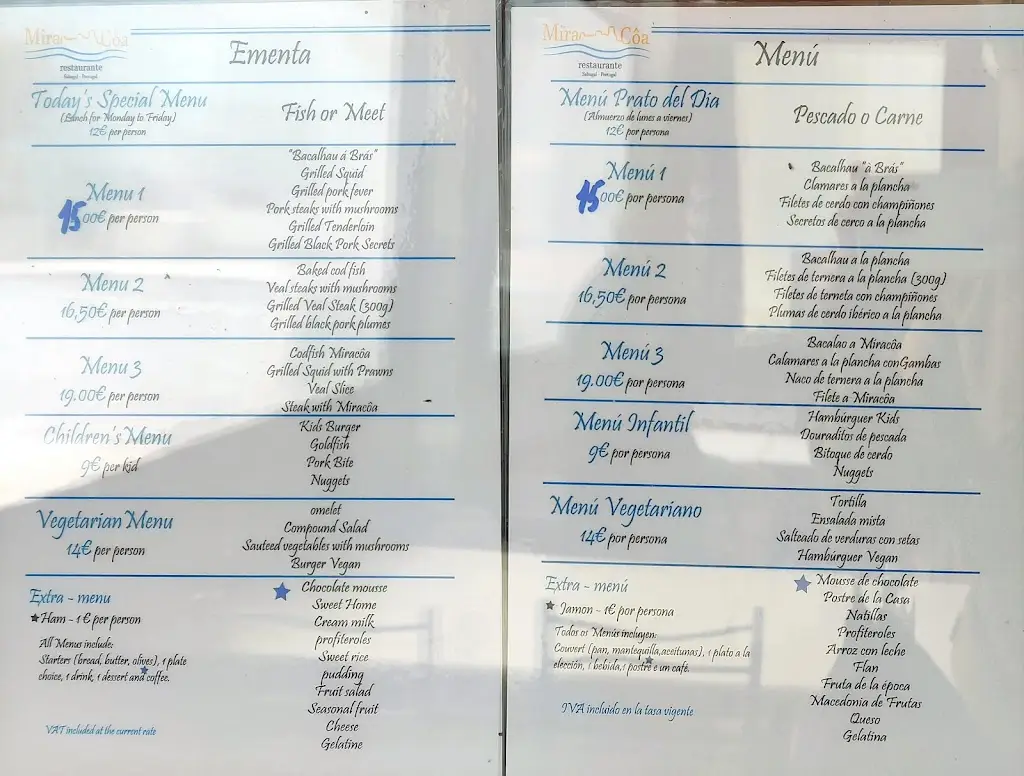 Mira Côa
restaurante
Sabugal - Portugal
Ementa
Today's Special Menu
(Lunch for Monday to Friday)
12€ per person
Fish or Meet
Menu 1
15,00€ per person
"Bacalhau á Brás"
Grilled Squid
Grilled pork fever
Pork steaks with mushrooms
Grilled Tenderloin
Grilled Black Pork Secrets
Menu 2
16,50€ per person
Baked cod fish
Veal steaks with mushrooms
Grilled Veal Steak (300g)
Grilled black pork plumes
Menu 3
19.00€ per person
Codfish Miracôa
Grilled Squid with Prawns
Veal Slice
Steak with Miracôa
Children's Menu
9€ per kid
Kids Burger
Goldfish
Pork Bite
Nuggets
Vegetarian Menu
14€ per person
omelet
Compound Salad
Sauteed vegetables with mushrooms
Burger Vegan
Extra - menu
Ham - 1€ per person
All Menus include:
Starters (bread, butter, olives), 1 plate
choice, 1 drink, 1 dessert and coffee.
VAT included at the current rate
Chocolate mousse
Sweet Home
Cream milk
profiteroles
Sweet rice
pudding
Fruit salad
Seasonal fruit
Cheese
Gelatine
Mira Côa
restaurante
Sabugal - Portugal
Menú
Menú Prato del Dia
(Almuerzo de lunes a viernes)
12€ por persona
Pescado o Carne
Menú 1
15,00€ por persona
Bacalhau "à Brás"
Clamares a la plancha
Filetes de cerdo con champiñones
Secretos de cerco a la plancha
Menú 2
16,50€ por persona
Bacalhau a la plancha
Filetes de ternera a la plancha (300g)
Filetes de terneta con champiñones
Plumas de cerdo ibérico a la plancha
Menú 3
19.00€ por persona
Bacalao a Miracôa
Calamares a la plancha conGambas
Naco de ternera a la plancha
Filete a Miracôa
Menú Infantil
9€ por persona
Hambúrguer Kids
Douraditos de pescada
Bitoque de cerdo
Nuggets
Menú Vegetariano
14€ por persona
Tortilla
Ensalada mista
Salteado de verduras con setas
Hambúrguer Vegan
Extra - menú
Jamon - 1€ por persona
Todos os Menús incluyen:
Couvert (pan, mantequilla,aceitunas), 1 plato a la
elección, 1 bebida,1 postre e un café.
IVA incluido en la tasa vigente
Mousse de chocolate
Postre de la Casa
Natillas
Profiteroles
Arroz con leche
Flan
Fruta de la época
Macedonia de Frutas
Queso
Gelatina